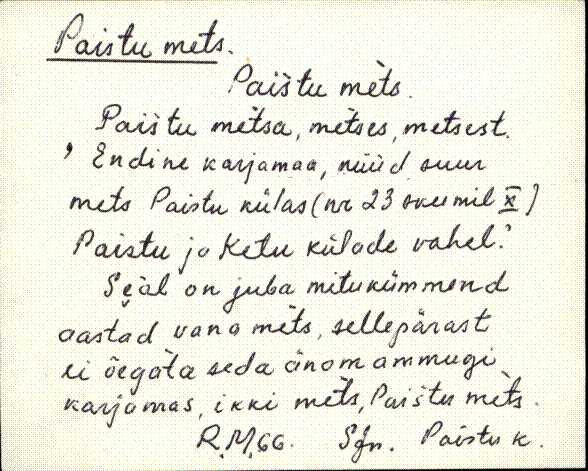 Paistu mets.
Paìštu mèts.
Paìštu mètsa, mètses, metsest.
’Endine karjamaa, nüüd suur
mets Paistu külas (nr 23 skeemil X)
Paistu ja Ketu külade vahel.’
Seäl on juba mitukümmend
aastad vana mèts, sellepärast
ei õegata seda änam ammugi
karjamas, ikki mèts, Paìštu mèts.
R.M. 66. Sjn. Paistu k.